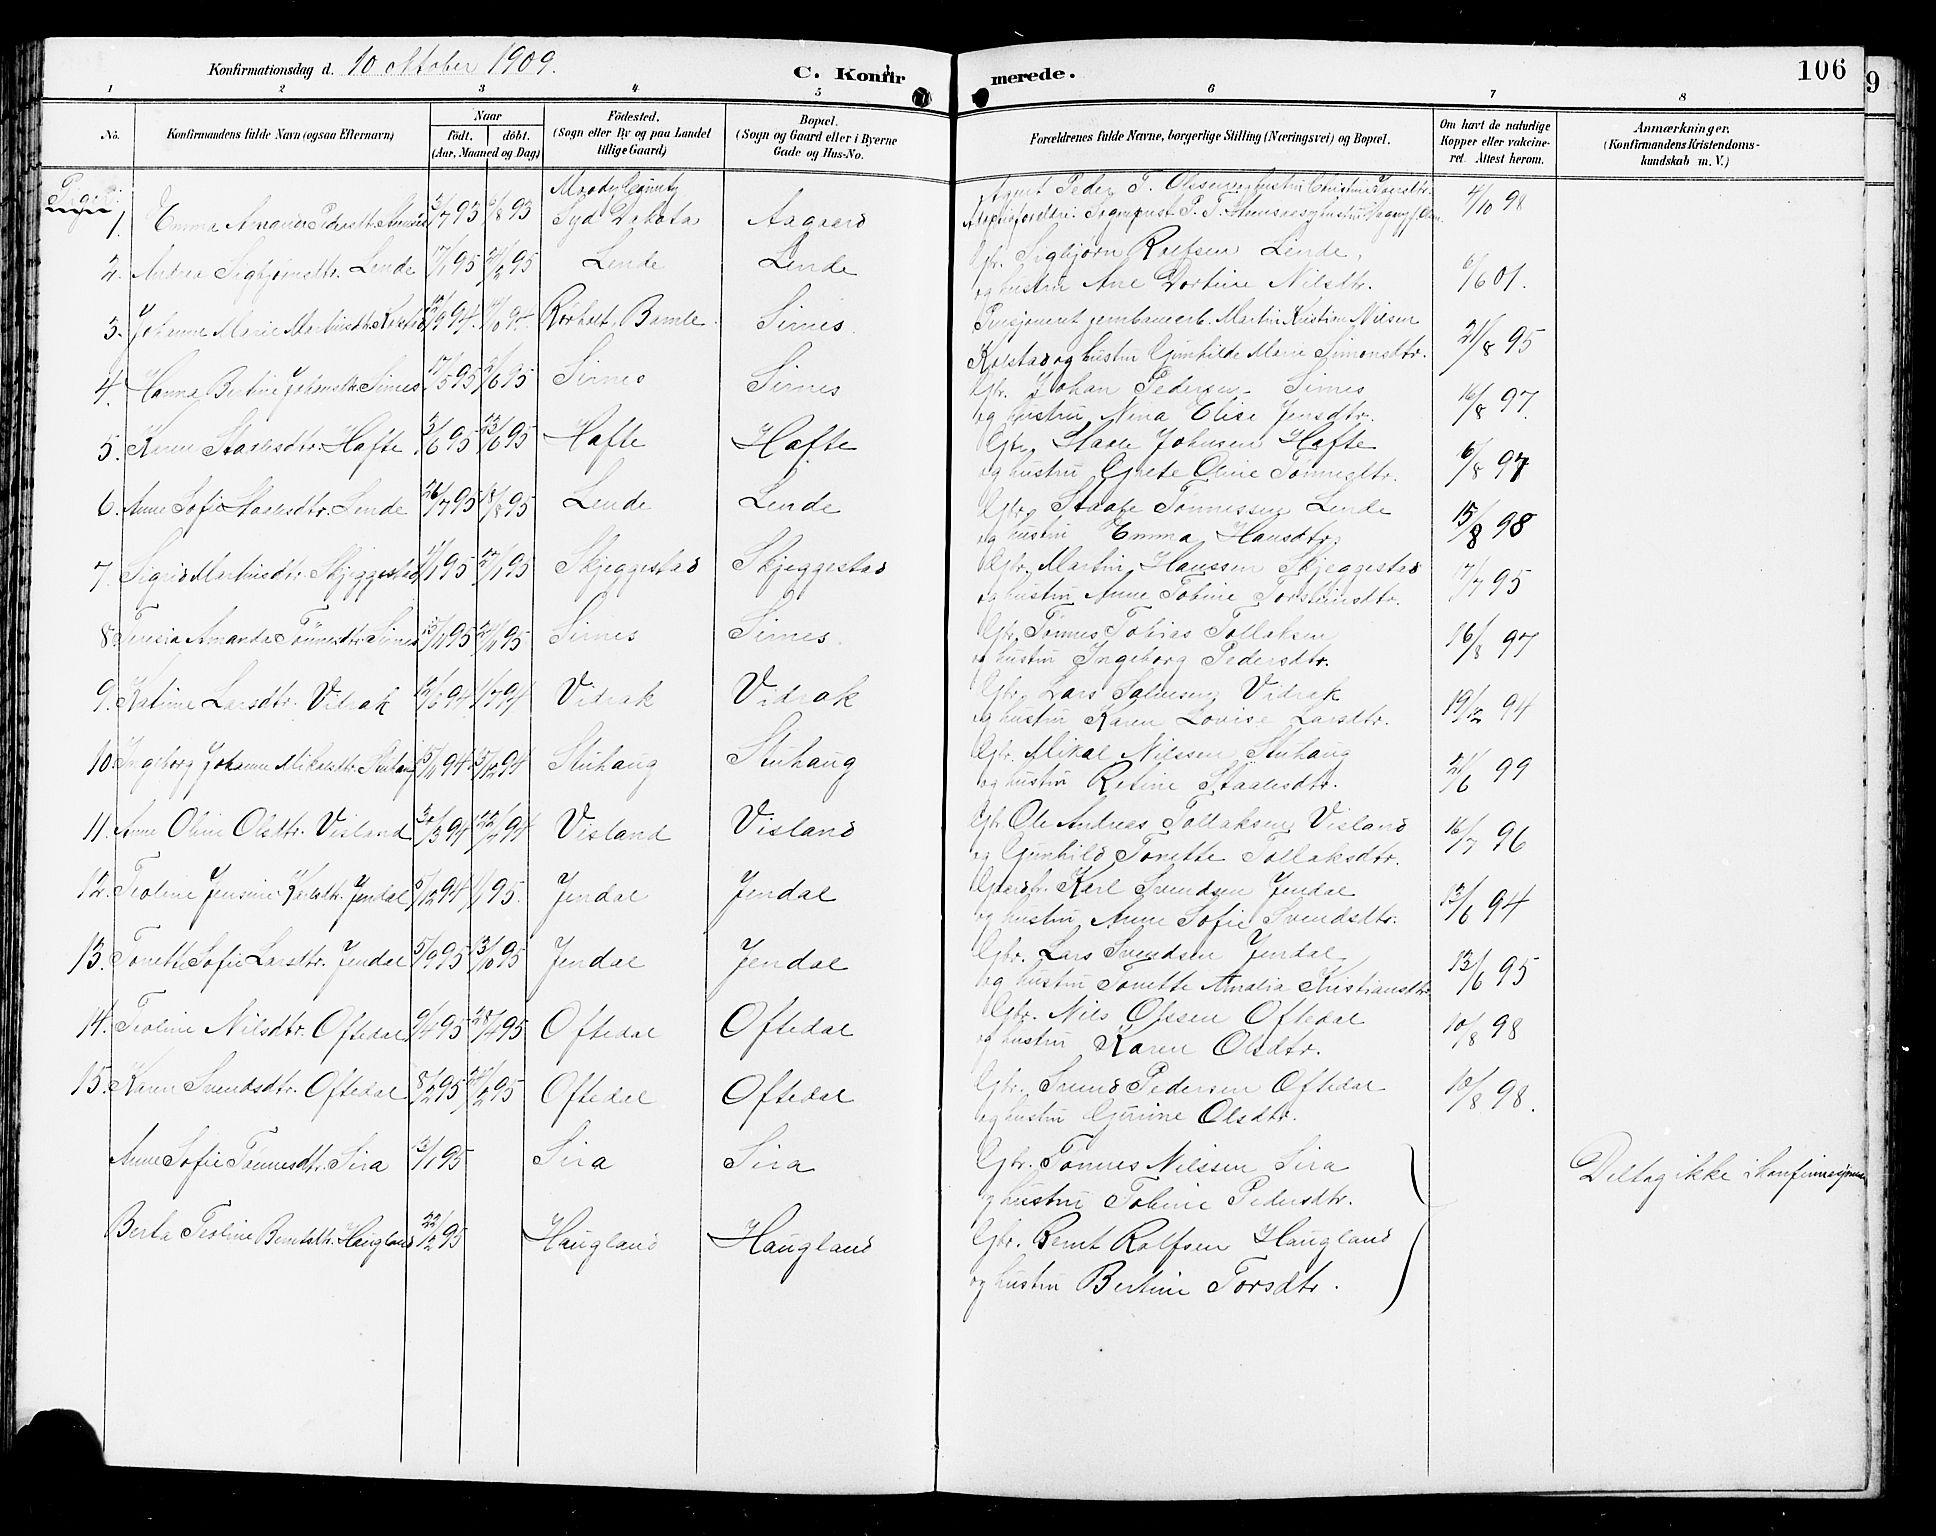 Konfirmationsdag d. 10 oktober 1909.
C. Konfir
merede.
106
1 2 3 4 5 6 7 8
No. Konfirmandens fulde Navn (ogsaa Efternavn) Naar født. døbt. (Aar, Maaned og Dag) Fødested. (Sogn eller By og paa Landet tillige Gaard) Bopæl. (Sogn og Gaard eller i Byerne Gade og Hus-No. Forældrenes fulde Navne, borgerlige Stilling (Næringsvei) og Bopæl. Om havt de naturlige Kopper eller vakcineret. Attest herom. Anmærkninger. (Konfirmandens Kristendomskundskab m. V.)
Piger:
Moody County Agent Peder T. Olssen og hustru Christine
1. Emma Amanda Pedersdtr. 3/7 93 6/8 93 Syd Dakota Aagaard 4/10 98
Gbr. Sigbjørn Rolfsen Lende,
2. Andrea Sigbjørnsdtr. Lende 17/1 95 95 Lende Lende og hustru Ane Dortine Nilsdtr. 6/6 01.
3. Johanne Marie Martinsdtr. Kolstad 94. Rørholt, Bamle. Sirnes. Pensjoneret jernbanearb. Martin Kristian Nilsen
Kolstad og hustru Gunhilde Marie Simonsdtr. 21/8 95
4. Hanna Bertine Johansdtr. Sirnes 17/5 95 /6 95 Sirnes Sirnes Gbr. Johan Pedersen Sirnes
og hustru Nina Elise Jensdtr. 16/8 97.
5. Karen Staalesdtr. Hafte 3/6 95 23/6 95 Hafte Hafte Gbr. Staale Johnsen Hafte
og hustru Grete Oline Tønnesdtr. 6/8 97
6. Anne Sofie Staalesdtr. Lende 26/7 95 18/8 95 Lende Lende Gbr. Staale Tønnessen Lende
og hustru Emma Hansdtr. 15/8 98
7. Sigrid Martinsdtr. Skjeggestad 11/1 95 27/1 95 Skjeggestad Skjeggestad Gbr. Martin Hanssen Skjeggestad
og hustru Anne Tobine Torstensdtr. 17/7 95
8. Teresia Amanda Tønnesdtr. Sirnes 95 95 Sirnes Sirnes. Gbr. Tønnes Tobias Tollaksen
og hustru Ingeborg Pedersdtr. 16/8 97
9. Katrine Larsdtr. Vidrak 12/6 94 1/7 94 Vidrak Vidrak Gbr. Lars Salvesen Vidrak
og hustru Karen Lovise Larsdtr. 19/12 94
10. Ingeborg Johanne Mikalsdtr. Stuhaug 15/11 94 3/12 94 Stuhaug Stuhaug Gbr. Mikal Nilssen Stuhaug
og hustru Retine Staalesdtr. 21/6 99
11. Anne Oline Olsdtr. Visland 30/3 94 22/4 94 Visland Visland Gbr. Ole Andreas Tollaksen Visland
og Gunhild Tonette Tollaksdtr. 16/7 96
12. Teoline Jensine Karlsdtr. Jendal 5/12 94 1/1 95. Jendal Jendal Gaardbr. Karl Svendsen Jendal
og hustru Anne Sofie Svendsdtr. 13/6 94
13. Tonette Sofie Larsdtr. Jendal 5/9 95 13/10 95 Jendal Jendal Gbr. Lars Svendsen Jendal
og hustru Tonette Amalia Kristiansdtr. 13/6 95
14. Teoline Nilsdtr. Oftedal 9/4 95 28/4 95 Oftedal Oftedal Gbr. Nils Olssen Oftedal
og hustru Karen Olsdtr. 10/8 98
15. Karen Svendsdtr. Oftedal 8/2 95 /2 95 Oftedal Oftedal Gbr. Svend Pedersen Oftedal
og hustru Gurine Olsdtr. 10/8 98.
Anne Sofie Tønnesdtr. Sira 13/1 95 Sira Sira Gbr. Tønnes Nilssen Sira
og hustru Tobine Pedersdtr. Deltog ikke i konfirmasjonen
Berta Teoline Berntsdtr. Haugland 22/2 95 Haugland Haugland Gbr. Bernt Rolfsen Haugland
og hustru Bertine Torsdtr.
9